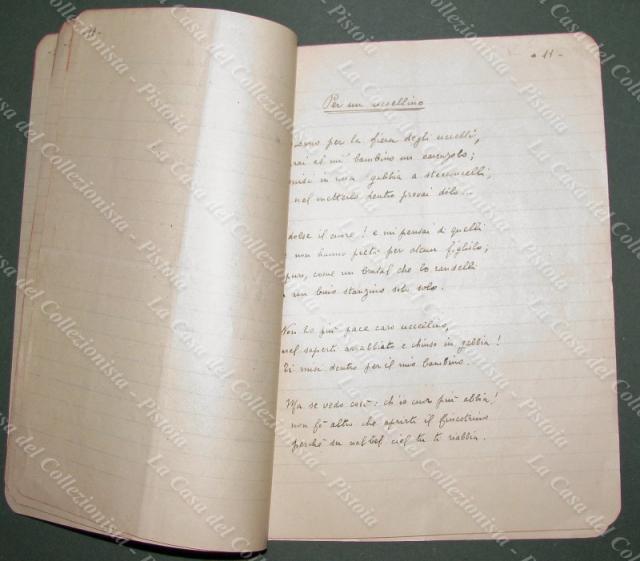 - 11 -
Per un uccellino
per la fiera degli uccelli,
al mi' bambino un
misi in una gabbia a steccarelli,
nel metterlo dentro provai
dolse il cuore! e mi pensai di quelli
non hanno pietà per alcun figliolo;
pure, come un
un buio stanzino solo.
Non ho più pace caro uccellino,
nel saperti arrabbiato e chiuso in gabbia!
Ti misi dentro per il mio bambino.
Ma se vedo così: ch'io cuor più abbia!
non fo altro che aprirti il finestrino
perchè su nel bel ciel tu ti riabbia.
La Casa del Collezionista - Pistoia